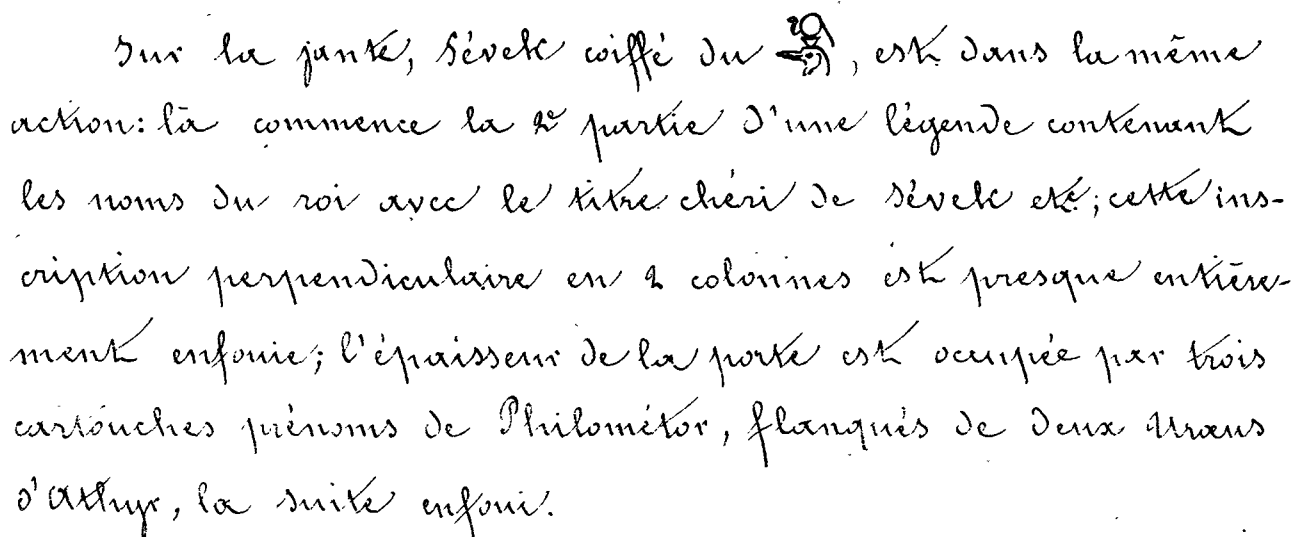 Sur la jante, Sévek coiffé du , est dans la même
action: là commence la 2e partie d'une légende contenant
les noms du roi avec le titre chéri de Sévek etc; cette ins-
cription perpendiculaire en 2 colonnes est presque entière-
ment enfouie; l'épaisseur de la porte est occupée par trois
cartouches prénoms de Philométor, flanqués de deux Uraeus
d'Athyr, la suite enfoui.